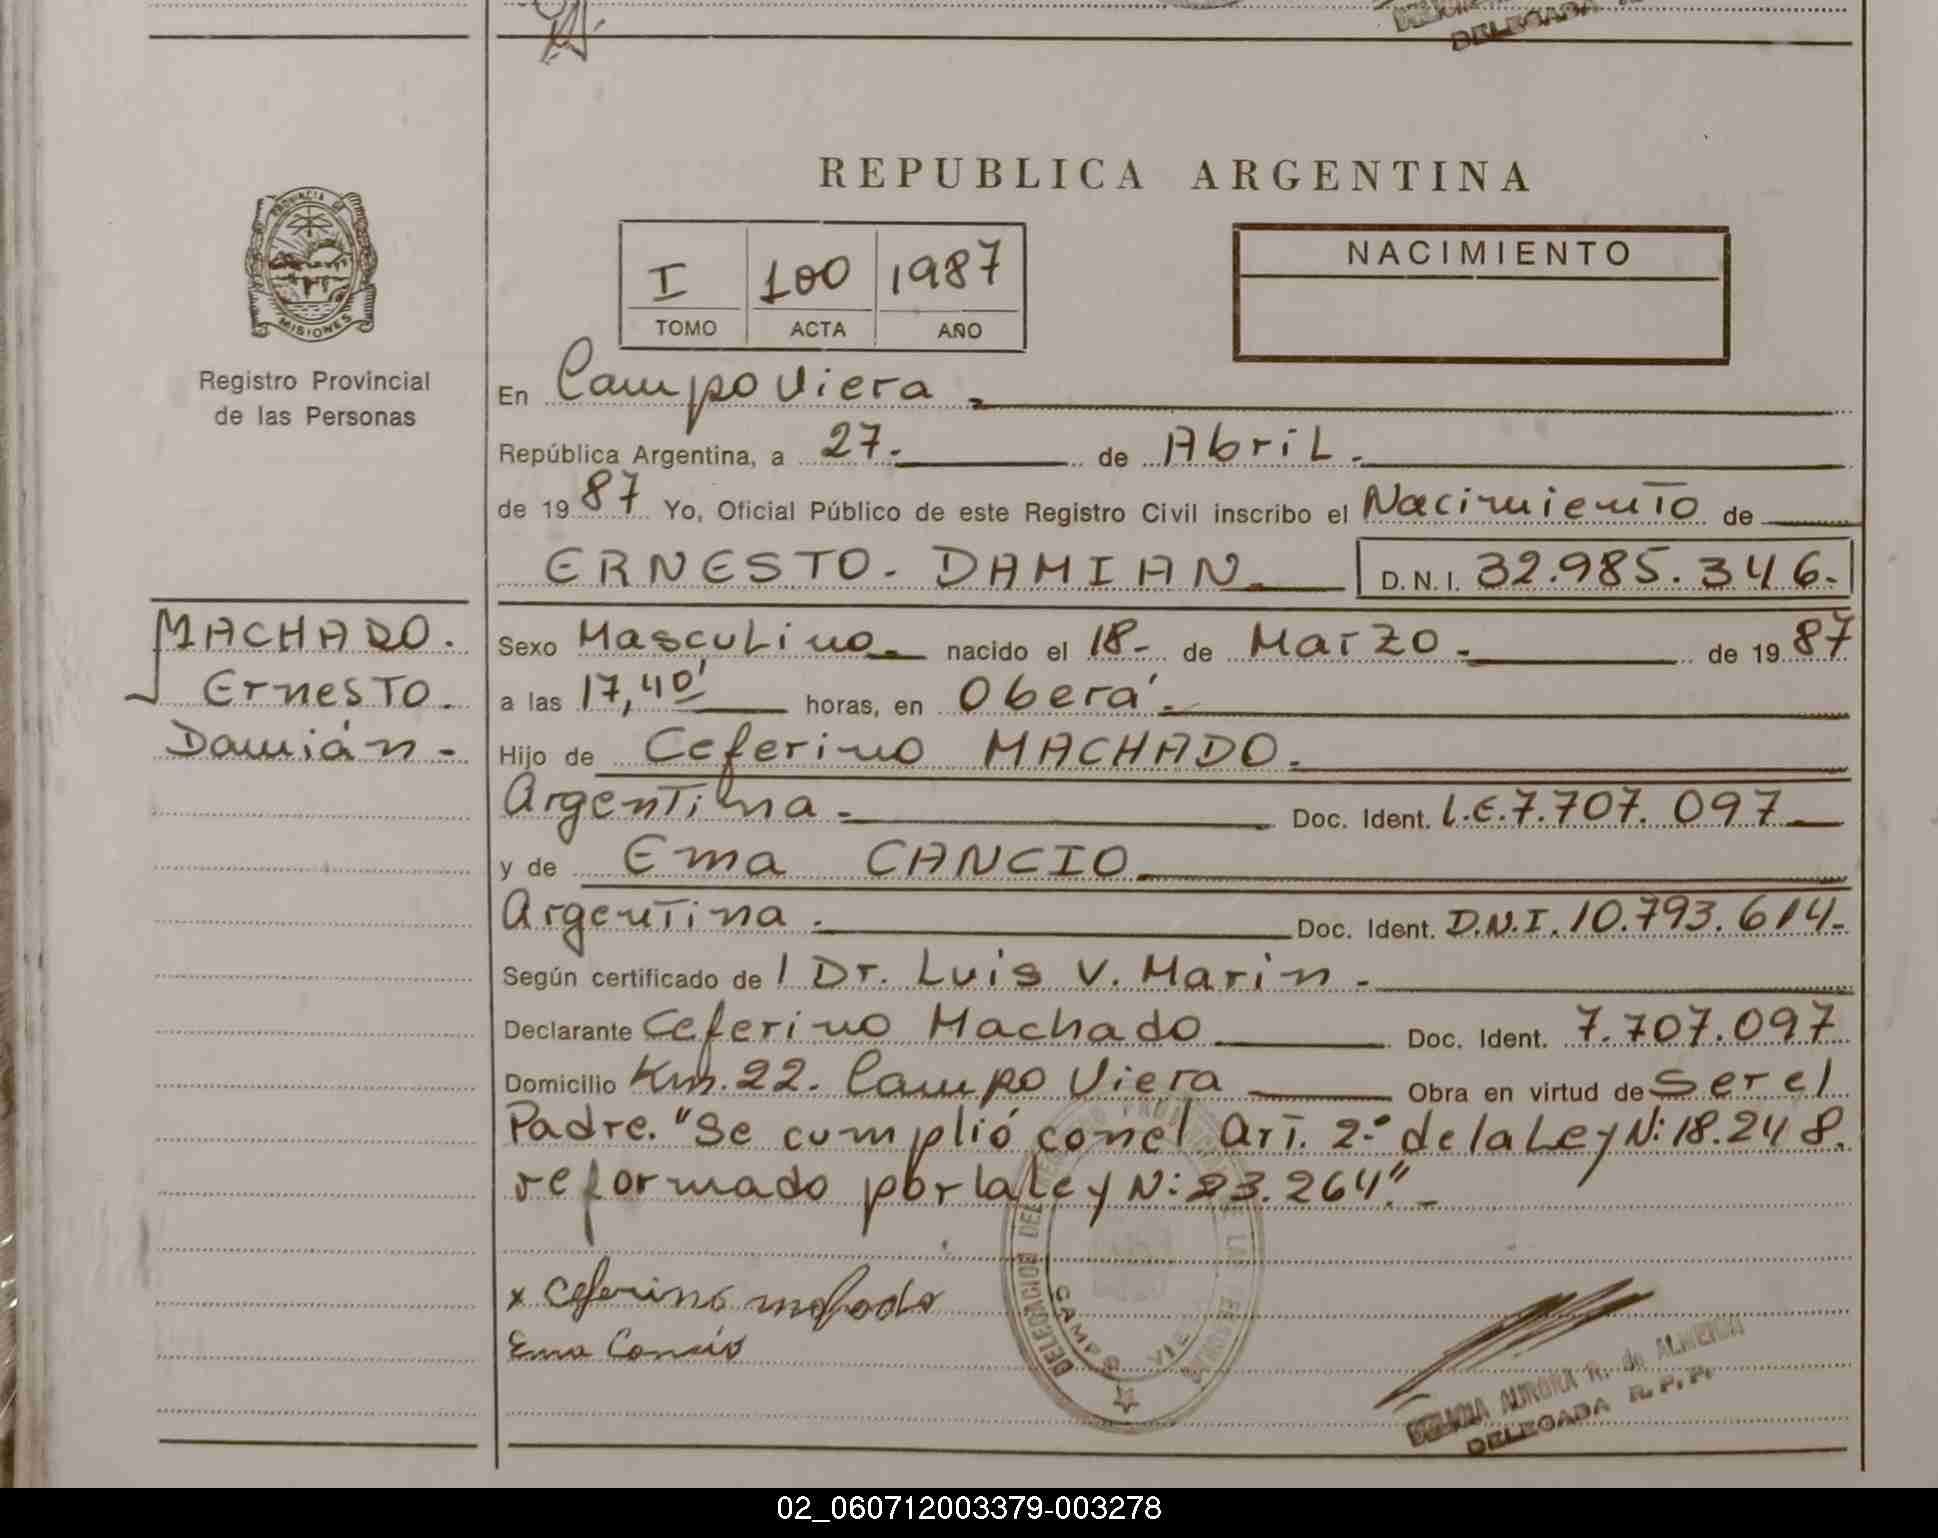 DELEGADA
REPUBLICA ARGENTINA
PROVINCIA DE
MISIONES
Registro Provincial
de las Personas
I 100 1987
TOMO ACTA AÑO
NACIMIENTO
En Campo Viera.
República Argentina, a 27. de Abril.
de 1987 Yo, Oficial Público de este Registro Civil inscribo el Nacimiento de
ERNESTO. DAMIAN. D.N.I. 32.985.346.
MACHADO.
Ernesto.
Damián.-
Sexo Masculino. nacido el 18- de Marzo. de 1987
a las 17,40' horas, en Oberá.
Hijo de Ceferino MACHADO.
Argentina. Doc. Ident. L.E. 7.707.097
y de Ema CANCIO
Argentina. Doc. Ident. D.N.I. 10.793.614.
Según certificado de l Dr. Luis V. Marin.
Declarante Ceferino Machado Doc. Ident. 7.707.097
Domicilio Km. 22. Campo Viera Obra en virtud de Ser el
Padre. "Se cumplió con el Art. 2-º de la Ley N: 18.248.
reformado por la Ley N: 23.264".-
x Ceferino machado
Ema Cancio
DELEGACION DEL REGISTRO PROVINCIAL DE LAS PERSONAS
CAMPO VIE
AURORA R. de ALMEIDA
DELEGADA R.P.P.
02_060712003379-003278